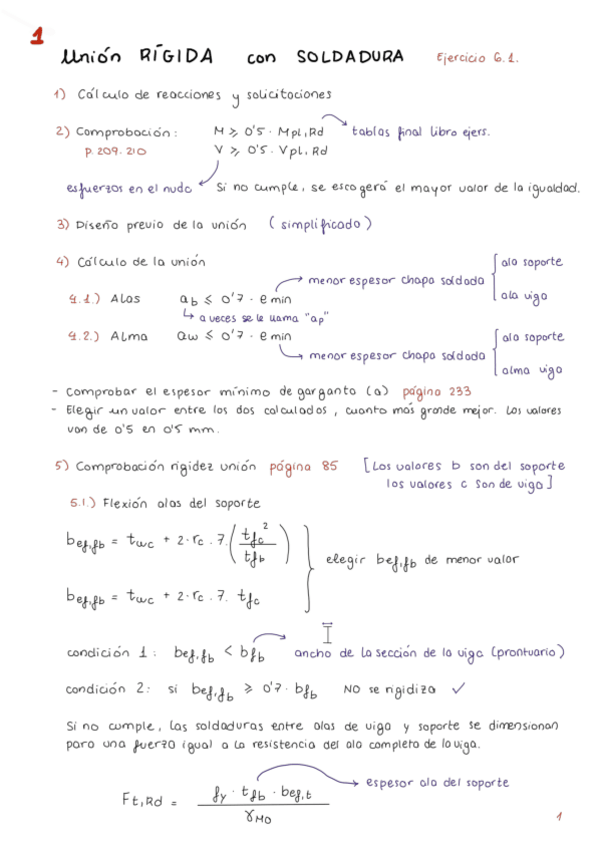 1
Unión RÍGIDA con SOLDADURA Ejercicio 6.1.
1) Cálculo de reacciones y solicitaciones
2) Comprobación: M ⩾ 0'5 · Mpl,Rd tablas final libro ejers.
p. 209. 210 V ⩾ 0'5 · Vpl,Rd
esfuerzos en el nudo Si no cumple, se escogerá el mayor valor de la igualdad.
3) Diseño previo de la unión (simplificado)
4) Cálculo de la unión
4.1.) Alas ab ⩽ 0'7 · e min menor espesor chapa soldada ala soporte ala viga
a veces se le llama "ap"
4.2.) Alma aw ⩽ 0'7 · e min menor espesor chapa soldada ala soporte alma viga
- Comprobar el espesor mínimo de garganta (a) página 233
- Elegir un valor entre los dos calculados, cuanto más grande mejor. Los valores
van de 0'5 en 0'5 mm.
5) Comprobación rigidez unión página 85 [Los valores b son del soporte
los valores c son de viga]
5.1.) Flexión alas del soporte
bef,fb = twc + 2 · rc · 7 · (tfc² / tfb)
elegir bef,fb de menor valor
bef,fb = twc + 2 · rc · 7 · tfc
condición 1: bef,fb < bfb ancho de la sección de la viga (prontuario)
condición 2: si bef,fb ⩾ 0'7 · bfb NO se rigidiza ✓
Si no cumple, las soldaduras entre alas de viga y soporte se dimensionan
para una fuerza igual a la resistencia del ala completo de la viga.
Ft,Rd = fy · tfb · bef,t / γM0 espesor ala del soporte
1